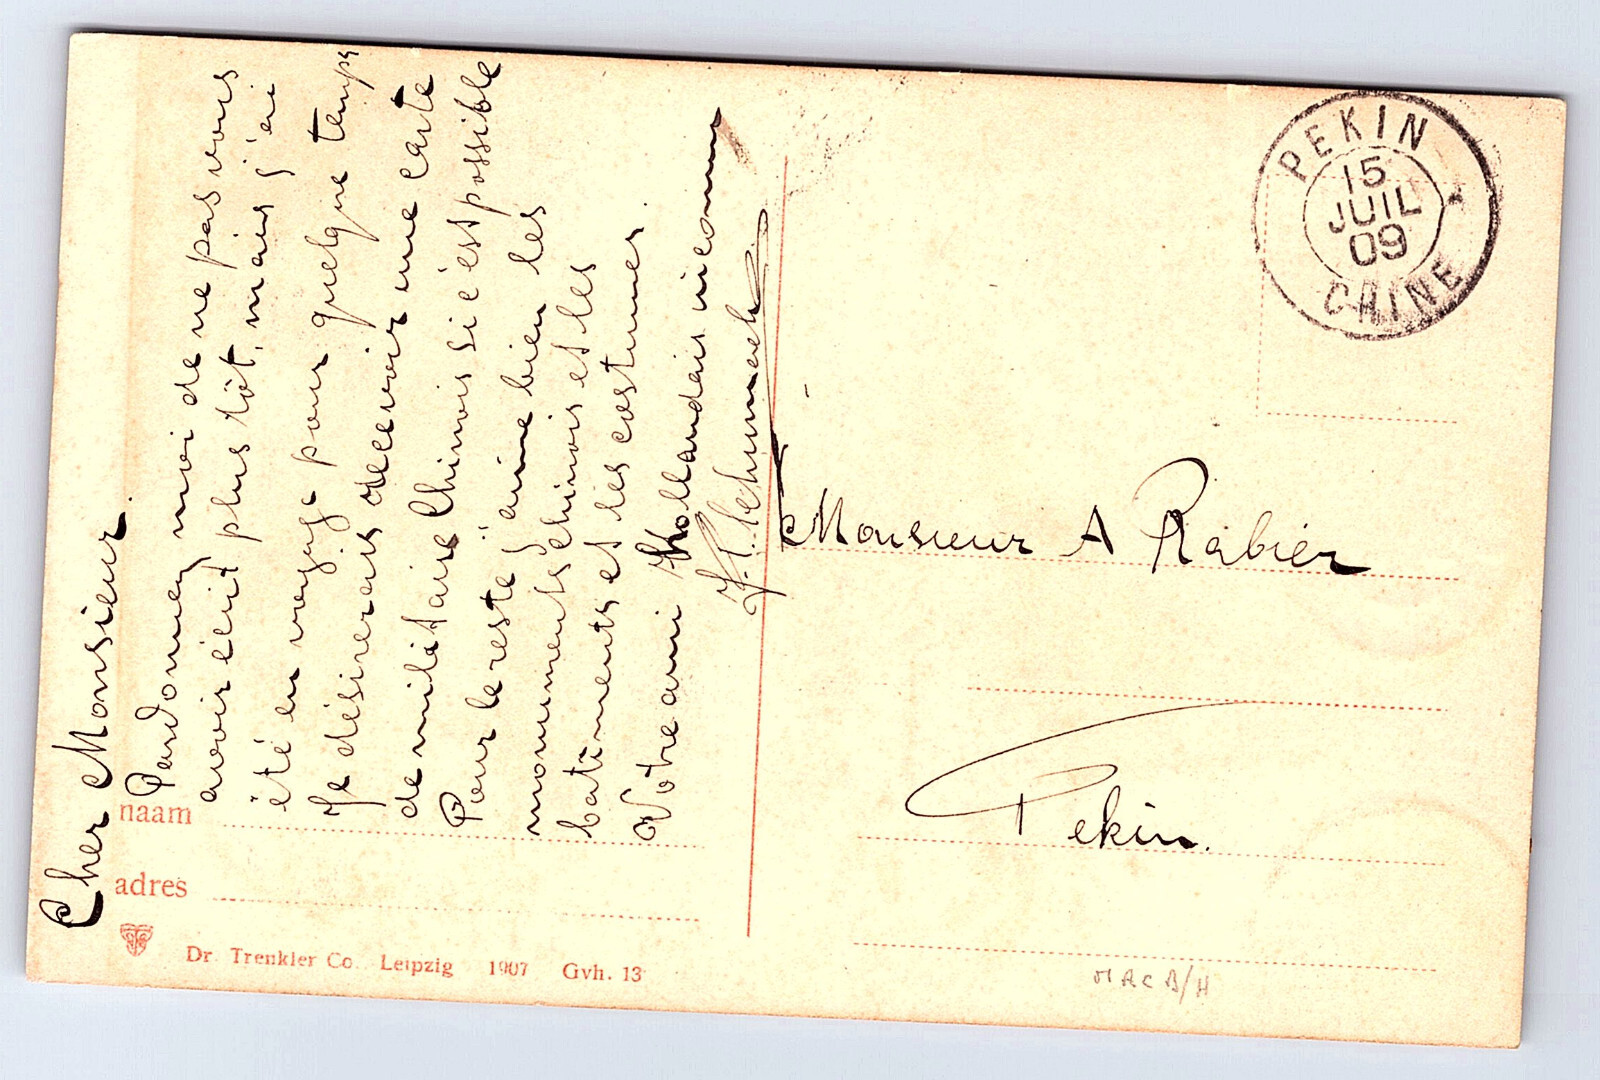 Cher Monsieur.
Pardonnez moi de ne pas vous
avoir écrit plus tôt, mais j'ai
été en voyage pour quelque temps
Je désirerais recevoir une carte
de militaire Chinois si c'est possible
Pour le reste j'aime bien les
monuments chinois et les
batiments et les costumes.
Votre ami Hollandais inconnu
Schumach
naam
adres
Dr. Trenkler Co. Leipzig 1907 Gvh. 13
PEKIN
15
JUIL
09
CHINE
Monsieur A Rabier
Pekin.